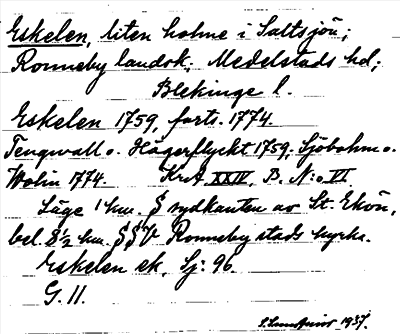 Eskelen, liten holme i Saltsjön;
Ronneby landsk., Medelstads hd;
Blekinge l.
Eskelen 1759, forts. 1774.
Tengwall o. Hägerflyckt 1759; Sjöbohm o.
Wolin 1774. KrA XXIV, B. N:o VI
Läge 1 km. S sydkanten av St. Ekön,
bel. 8½ km. SSV Ronneby stads kyrka.
Eskelen ek. Sj: 96.
G. 11.
1937.